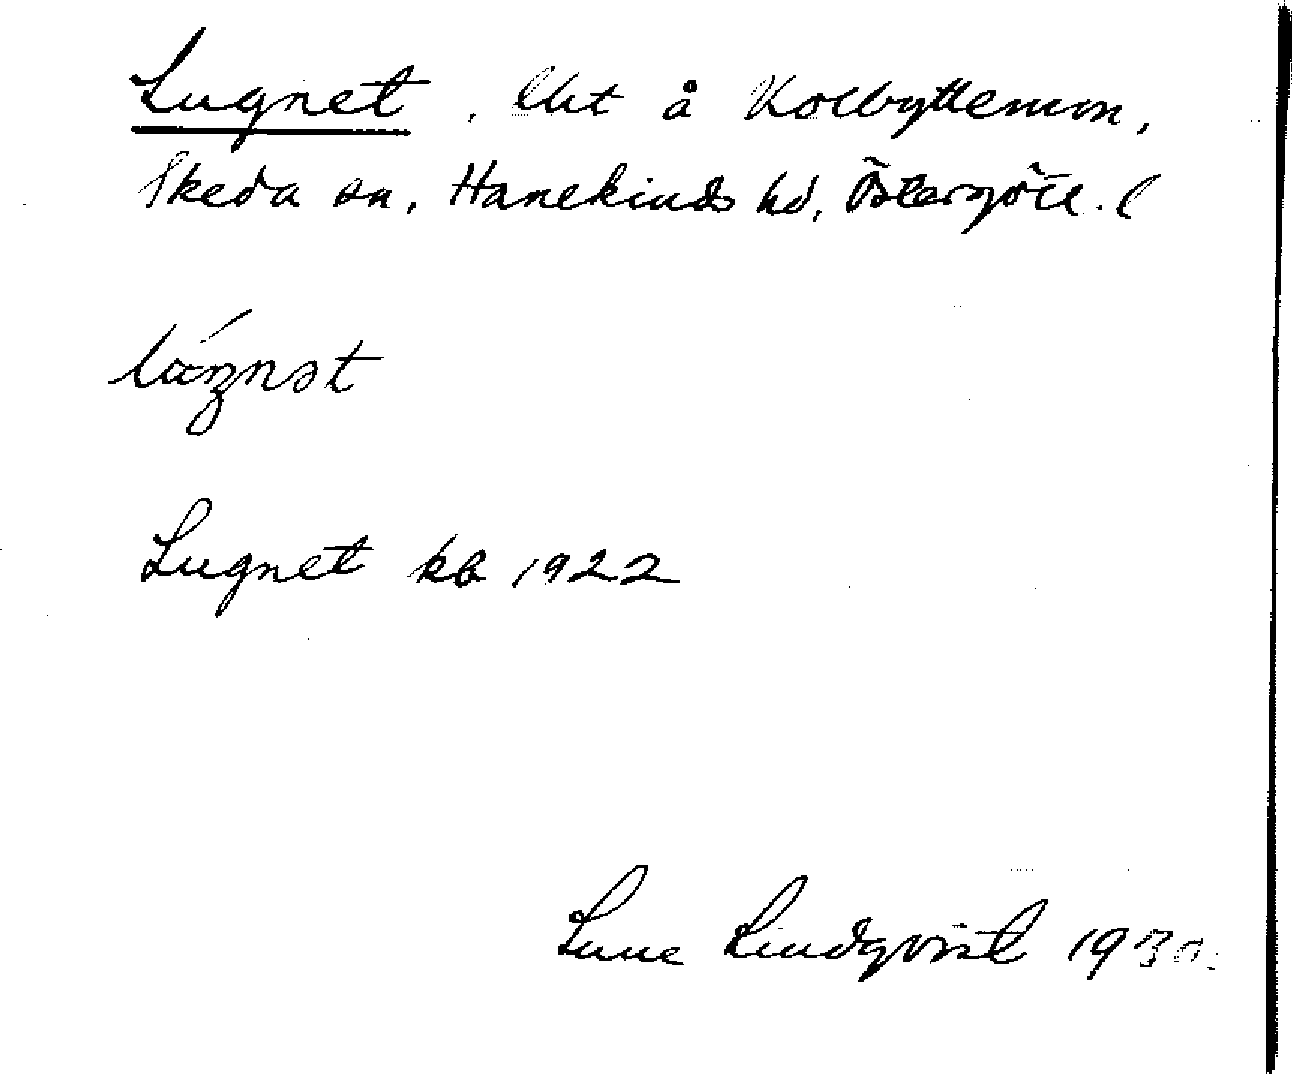 Lugnet, lht å Kolbyttemon,
Skeda sn, Hanekinds hd, Östergötl. (
Lugnet kb 1922
Sune Lindqvist 1930.